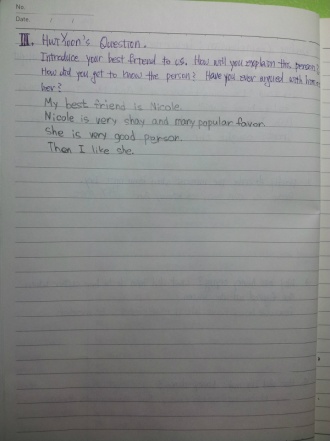 No.
Date / /
III. HwiYoon's Question.
Introduce your best friend to us. How will you explain the person?
How did you get to know the person? Have you ever argued with him or
her?
My best friend is Nicole.
Nicole is very shay and many popular favor.
She is very good person.
Then I like she.